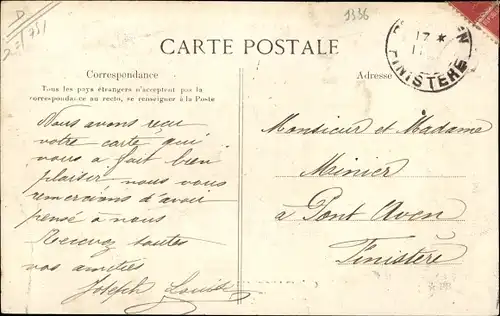 1336
CARTE POSTALE
Correspondance
Tous les pays étrangers n'acceptent pas la
correspondance au recto, se renseigner à la Poste
Adresse
17 *
FINISTERE
Nous avons reçu
votre carte qui
vous a fait bien
plaisir nous vous
remercions d'avoir
pensé a nous
Recevez toutes
vos amitiés
Joseph Louise
Monsieur et Madame
Minier
à Pont Aven
Finistère